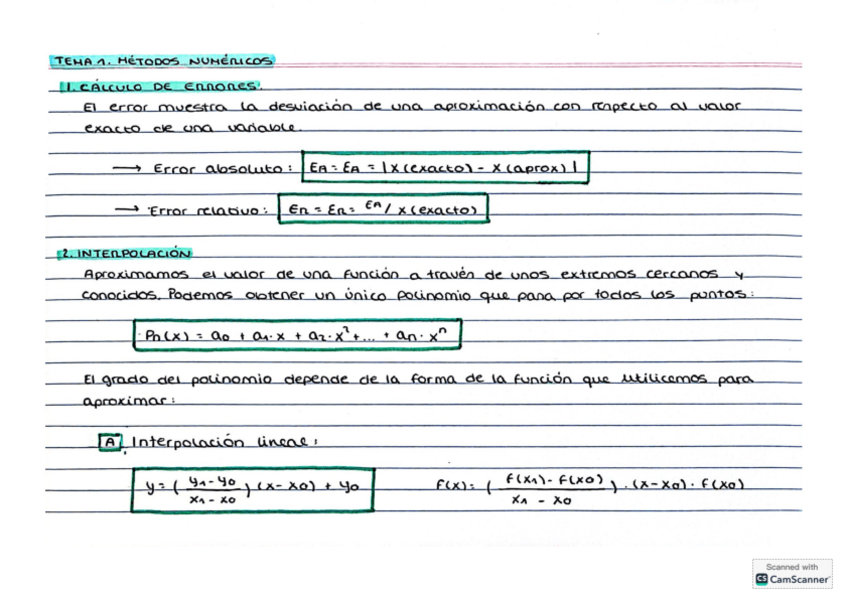 TEMA 1. MÉTODOS NUMÉRICOS
1. CÁLCULO DE ERRORES.
El error muestra la desviación de una aproximación con respecto al valor
exacto de una variable.
→ Error absoluto: EA = EA = |X(exacto) - X(aprox)|
→ Error relativo: ER = ER = EA / X(exacto)
2. INTERPOLACIÓN
Aproximamos el valor de una función a través de unos extremos cercanos y
conocidos. Podemos obtener un único polinomio que pana por todos los puntos:
Pn(x) = a0 + a1·x + a2·x² + ... + an·xⁿ
El grado del polinomio depende de la forma de la función que utilicemos para
aproximar:
A. Interpolación lineal:
y = ( y1-y0 / x1-x0 ) (x-x0) + y0 f(x) = ( f(x1) - f(x0) / x1 - x0 ) · (x-x0) · f(x0)
Scanned with
CS CamScanner